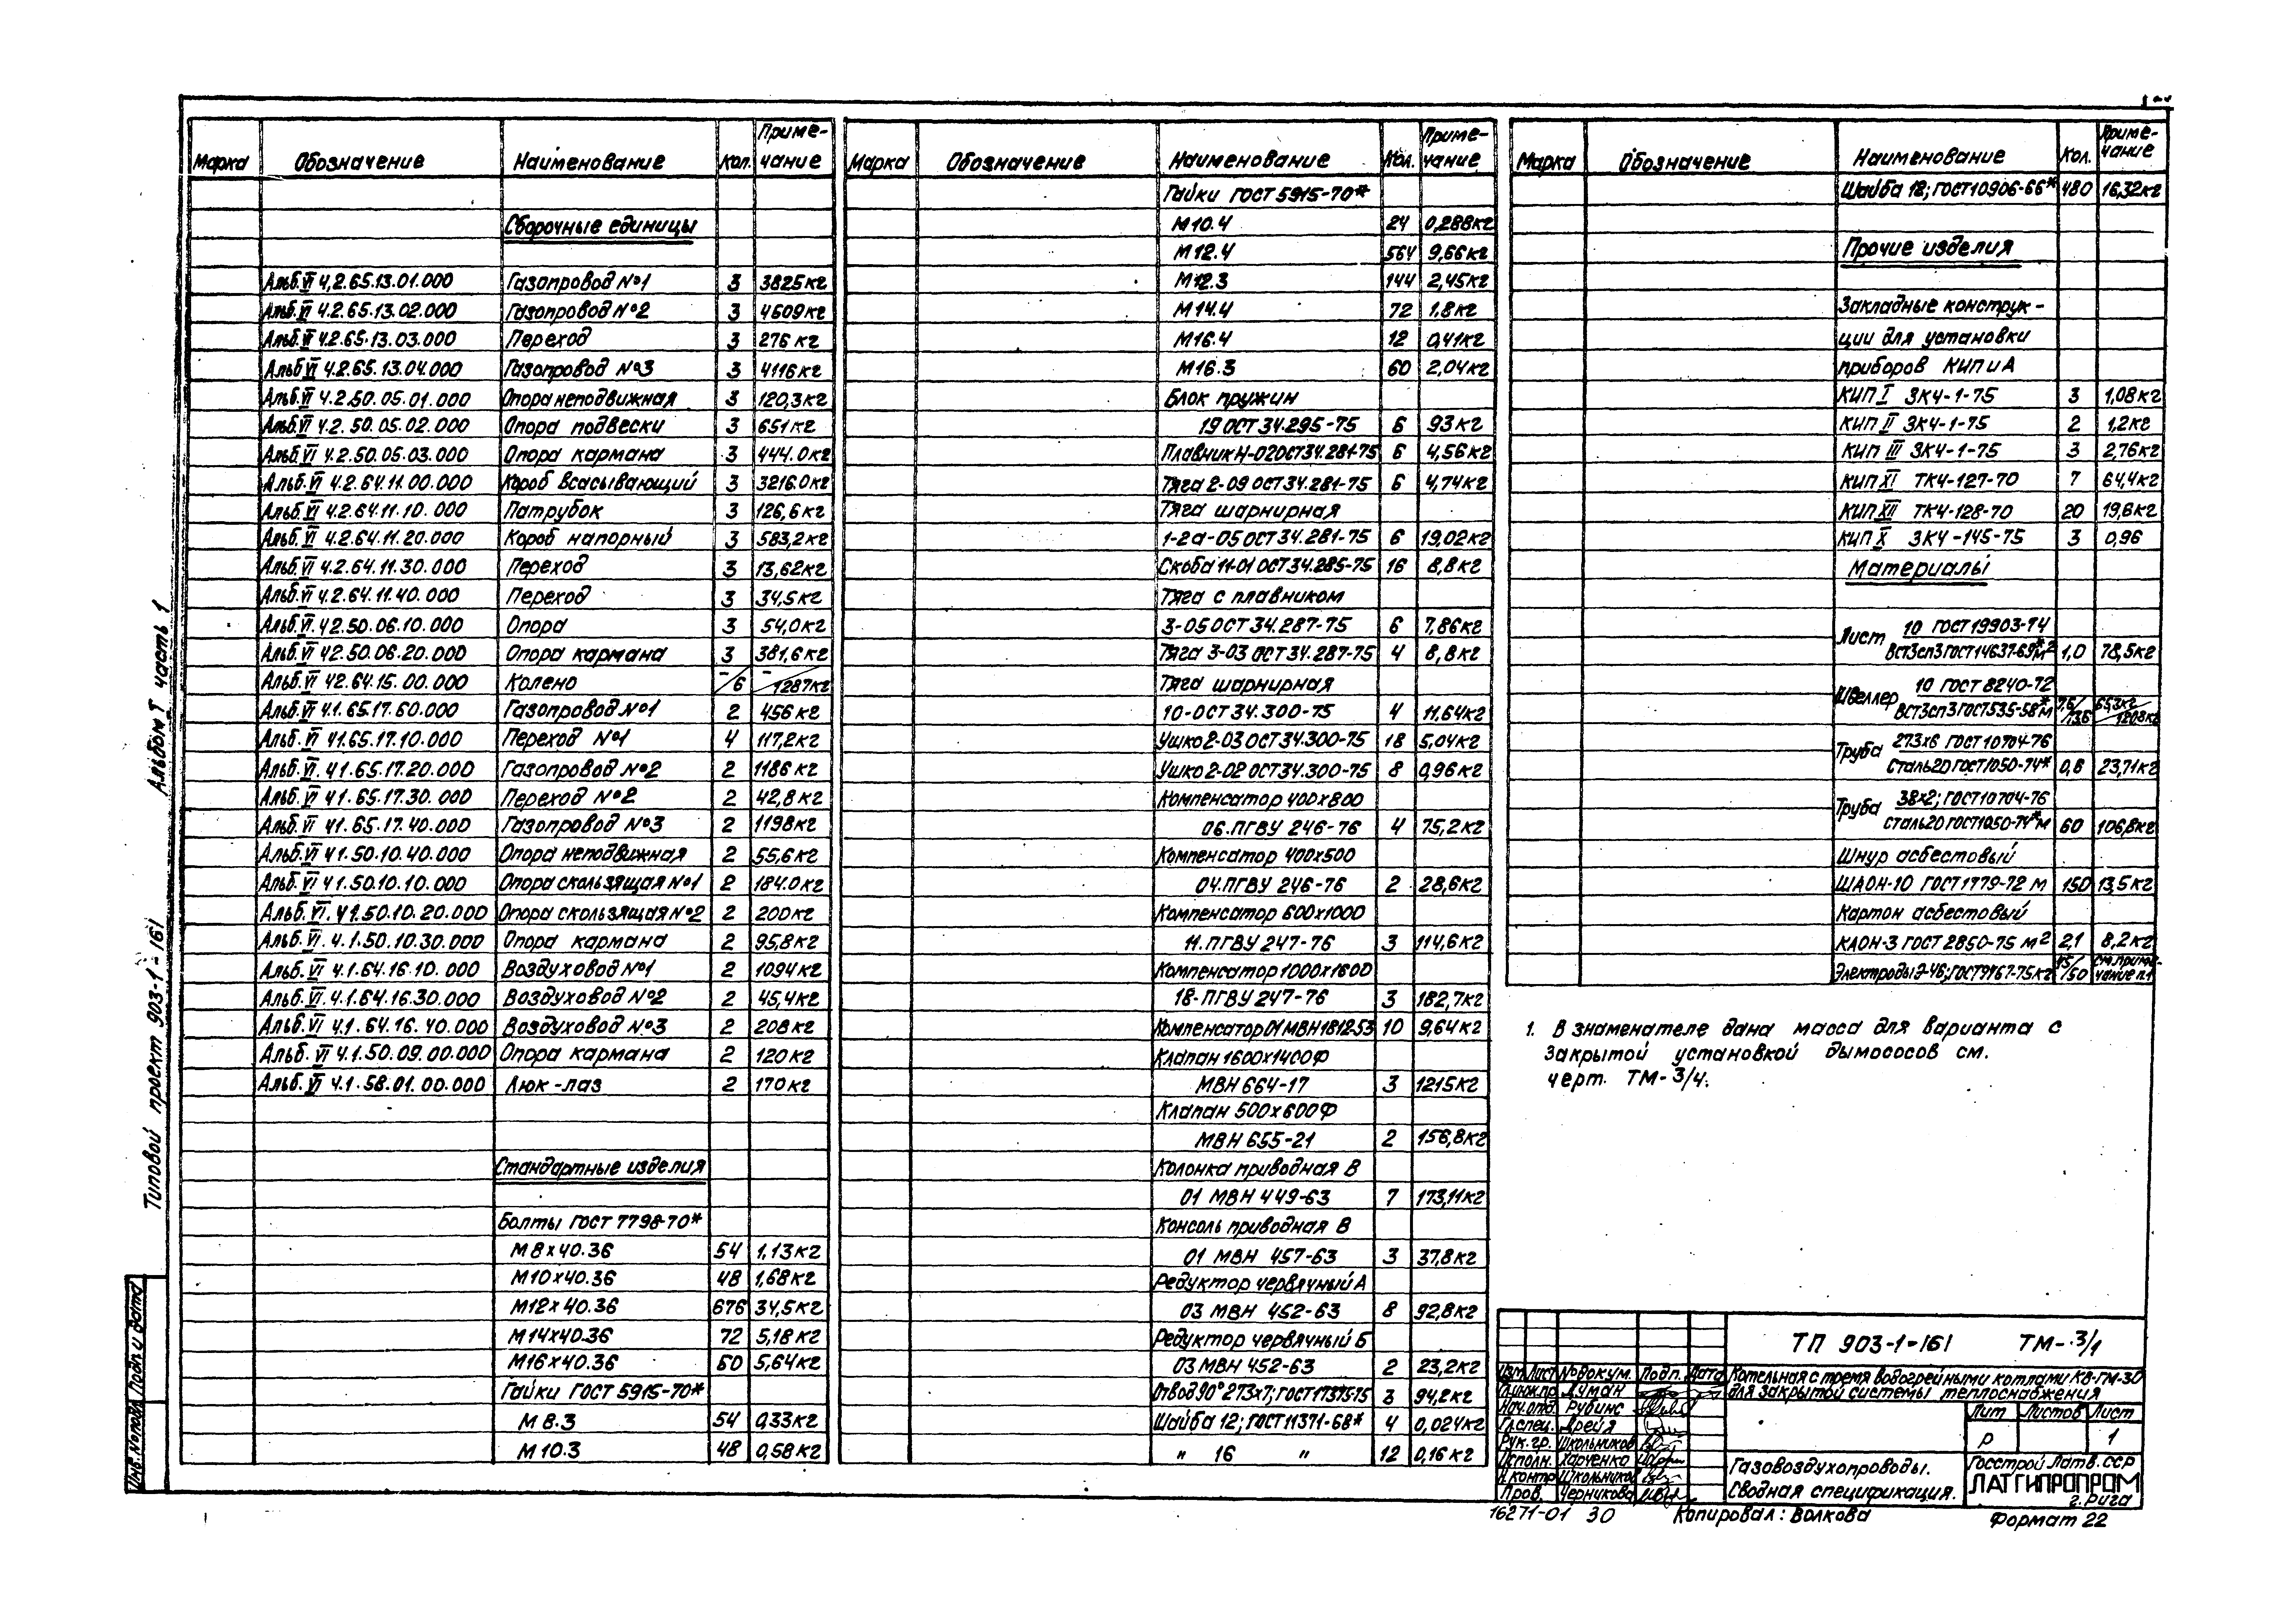 Марка Обозначение Наименование Кол. Приме-чание
Сборочные единицы
Альб.VI 4.2.65.13.01.000 Газопровод №1 3 3825кг
Альб.VI 4.2.65.13.02.000 Газопровод №2 3 4609кг
Альб.VI 4.2.65.13.03.000 Переход 3 276 кг
Альб.VI 4.2.65.13.04.000 Газопровод №3 3 4116кг
Альб.VI 4.2.50.05.01.000 Опора неподвижная 3 120,3кг
Альб.VI 4.2.50.05.02.000 Опора подвески 3 651кг
Альб.VI 4.2.50.05.03.000 Опора кармана 3 444.0кг
Альб.VI 4.2.64.11.00.000 Короб всасывающий 3 3216.0кг
Альб.VI 4.2.64.11.10.000 Патрубок 3 126,6кг
Альб.VI 4.2.64.11.20.000 Короб напорный 3 583,2кг
Альб.VI 4.2.64.11.30.000 Переход 3 13,62кг
Альб.VI 4.2.64.11.40.000 Переход 3 34,5кг
Альб.VI 42.50.06.10.000 Опора 3 54,0кг
Альб.VI 42.50.06.20.000 Опора кармана 3 381,6кг
Альб.VI 42.64.15.00.000 Колено -/6 -/1287кг
Альб.VI 4.1.65.17.60.000 Газопровод №1 2 456кг
Альб.VI 41.65.17.10.000 Переход №1 4 117,2кг
Альб.VI. 41.65.17.20.000 Газопровод №2 2 1186кг
Альб.VI 41.65.17.30.000 Переход №2 2 42,8кг
Альб.VI 41.65.17.40.000 Газопровод №3 2 1198кг
Альб.VI 41.50.10.40.000 Опора неподвижная 2 55,6кг
Альб.VI 41.50.10.10.000 Опора скользящая №1 2 184.0кг
Альб.VI. 41.50.10.20.000 Опора скользящая №2 2 200кг
Альб.VI. 4.1.50.10.30.000 Опора кармана 2 95,8кг
Альб.VI 4.1.64.16.10.000 Воздуховод №1 2 1094кг
Альб.VI 4.1.64.16.30.000 Воздуховод №2 2 45,4кг
Альб.VI 4.1.64.16.40.000 Воздуховод №3 2 208кг
Альб.VI 4.1.50.09.00.000 Опора кармана 2 120кг
Альб.VI 4.1.58.01.00.000 Люк-лаз 2 170кг
Стандартные изделия
Болты ГОСТ 7798-70*
М8х40.36 54 1,13кг
М10х40.36 48 1,68кг
М12х40.36 676 34,5кг
М14х40.36 72 5,18кг
М16х40.36 60 5,64кг
Гайки ГОСТ 5915-70*
М8.3 54 0,33кг
М10.3 48 0,58кг
Марка Обозначение Наименование Кол. Приме-чание
Гайки ГОСТ 5915-70*
М10.4 24 0,288кг
М12.4 564 9,66кг
М12.3 144 2,45кг
М14.4 72 1,8кг
М16.4 12 0,41кг
М16.3 60 2,04кг
Блок пружин
19 ОСТ 34.295-75 6 93кг
Плавник Н-02 ОСТ 34.281-75 6 4,56кг
Тяга 2-09 ОСТ 34.281-75 6 4,74кг
Тяга шарнирная
1-2а-05 ОСТ 34.281-75 6 19,02кг
Скоба 11-01 ОСТ 34.285-75 16 8,8кг
Тяга с плавником
3-05 ОСТ 34.287-75 6 7,86кг
Тяга 3-03 ОСТ 34.287-75 4 8,8кг
Тяга шарнирная
10-ОСТ 34.300-75 4 11,64кг
Ушко 2-03 ОСТ 34.300-75 18 5,04кг
Ушко 2-02 ОСТ 34.300-75 8 0,96кг
Компенсатор 400х800
06.ПГВУ 246-76 4 75,2кг
Компенсатор 400х500
04.ПГВУ 246-76 2 28,6кг
Компенсатор 600х1000
11.ПГВУ 247-76 3 114,6кг
Компенсатор 1000х1600
18-ПГВУ 247-76 3 182,7кг
Компенсатор 01 МВН 1812-53 10 9,64кг
Клапан 1600х1400Ф
МВН 664-17 3 1215кг
Клапан 500х600Ф
МВН 655-21 2 156,8кг
Колонка приводная В
01 МВН 449-63 7 173,11кг
Консоль приводная В
01 МВН 457-63 3 37,8кг
Редуктор червячный А
03 МВН 452-63 8 92,8кг
Редуктор червячный Б
03 МВН 452-63 2 23,2кг
Отвод 90° 273х7; ГОСТ 17375-75 3 94,2кг
Шайба 12; ГОСТ 11371-68* 4 0,024кг
" 16 " 12 0,16кг
Марка Обозначение Наименование Кол. Приме-чание
Шайба 12; ГОСТ 10906-66* 480 16,32кг
Прочие изделия
Закладные конструк-
ции для установки
приборов КИПиА
КИП I ЗК4-1-75 3 1,08кг
КИП II ЗК4-1-75 2 1,2кг
КИП III ЗК4-1-75 3 2,76кг
КИП XI ТК4-127-70 7 64,4кг
КИП XII ТК4-128-70 20 19,6кг
КИП X ЗК4-145-75 3 0,96
Материалы
Лист 10 ГОСТ 19903-74
ВСт3сп3 ГОСТ 14637-69* м2 1,0 78,5кг
Швеллер 10 ГОСТ 8240-72
ВСт3сп3 ГОСТ 535-58* м 7,6/136 65,3кг/1208кг
Труба 273х6 ГОСТ 10704-76
Сталь20 ГОСТ 1050-74* 0,6 23,71кг
Труба 38х2; ГОСТ 10704-76
Сталь20 ГОСТ 1050-74* м 60 106,8кг
Шнур асбестовый
ШАОН-10 ГОСТ 1779-72 м 150 13,5кг
Картон асбестовый
КАОН-3 ГОСТ 2850-75 м2 2,1 8,2кг
Электроды Э-46; ГОСТ 9467-75 кг 45/50 см. приме-чание п.1
1. В знаменателе дана масса для варианта с
закрытой установкой дымососов см.
черт. ТМ-3/4.
Альбом I часть 1
Типовой проект 903-1-161
Инв.№подл. Подп. и дата
ТП 903-1-161 ТМ-3/1
Изм. Лист № докум. Подп. Дата
Котельная с тремя водогрейными котлами КВ-ГМ-30
для закрытой системы теплоснабжения
Гл.инж.пр. Думан
Нач.отд. Рубинс
Гл.спец. Дрейя
Рук.гр. Школьников
Исполн. Харченко
Н.контр. Школьников
Пров. Черникова
Лит Листов Лист
р 1
Газовоздухопроводы.
Сводная спецификация.
Госстрой Латв.ССР
ЛАТГИПРОПРОМ
г.Рига
16271-01 30 Копировал: Волкова Формат 22